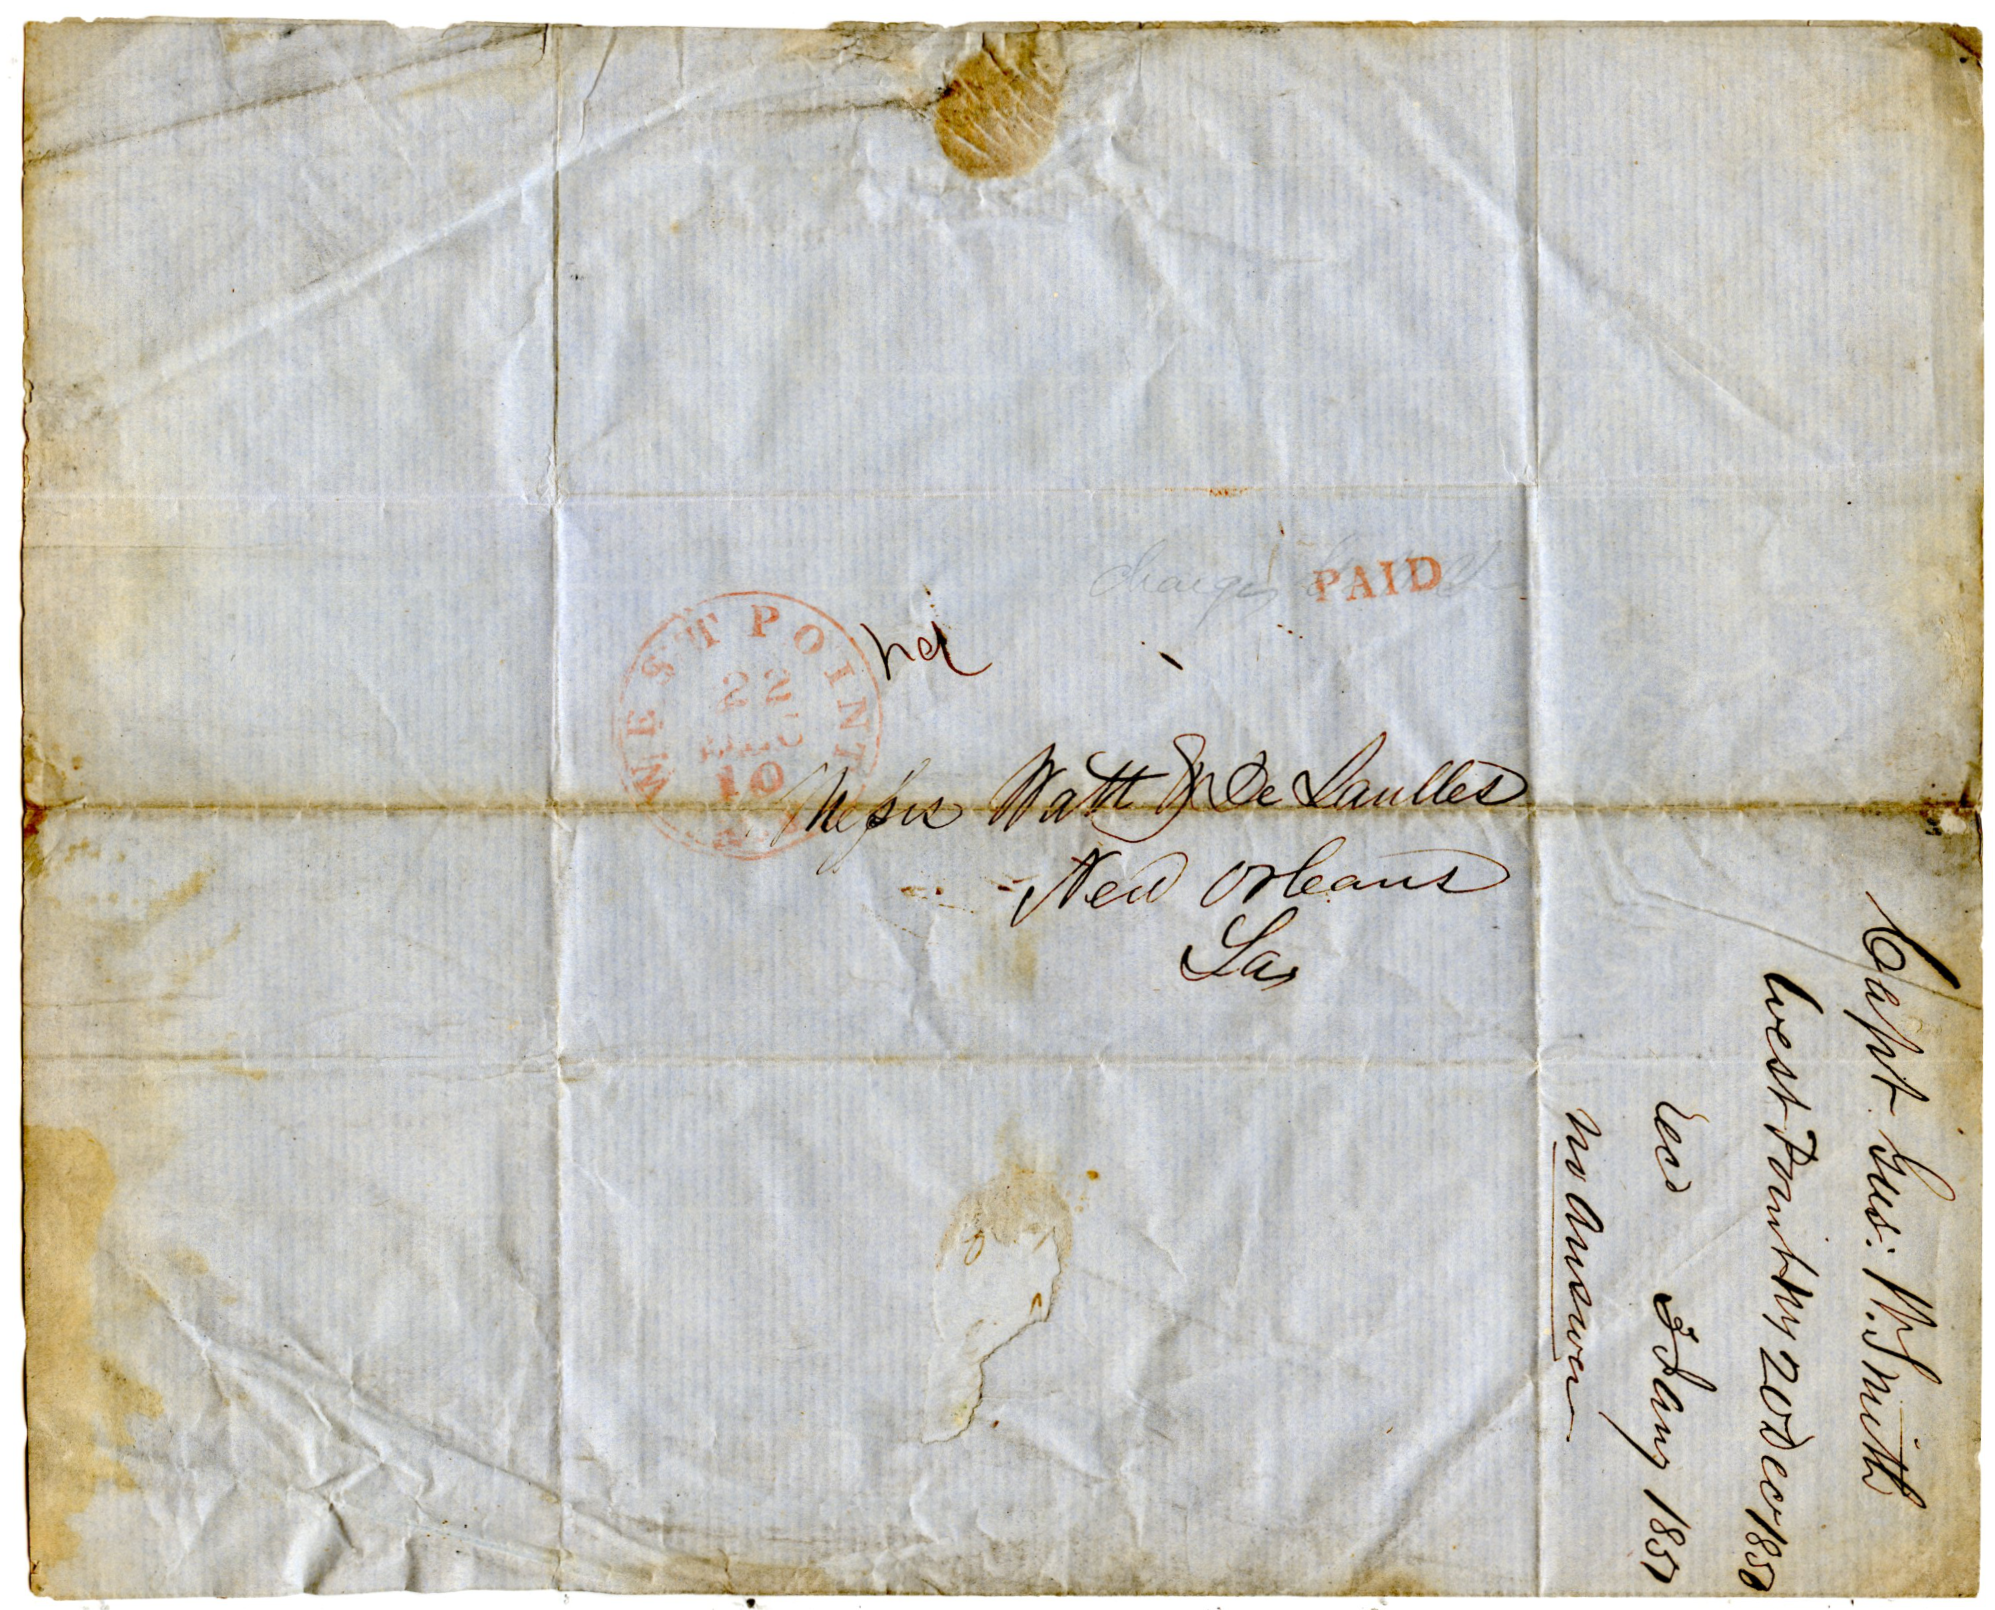 charge
PAID
WEST POINT
22
DEC
10
N.Y.
Messrs Watt & De Saulles
New Orleans
La
Capt Gus: W. Smith
West Point NY 20 Dec 1850
Recd 3 Jany 1851
no answer